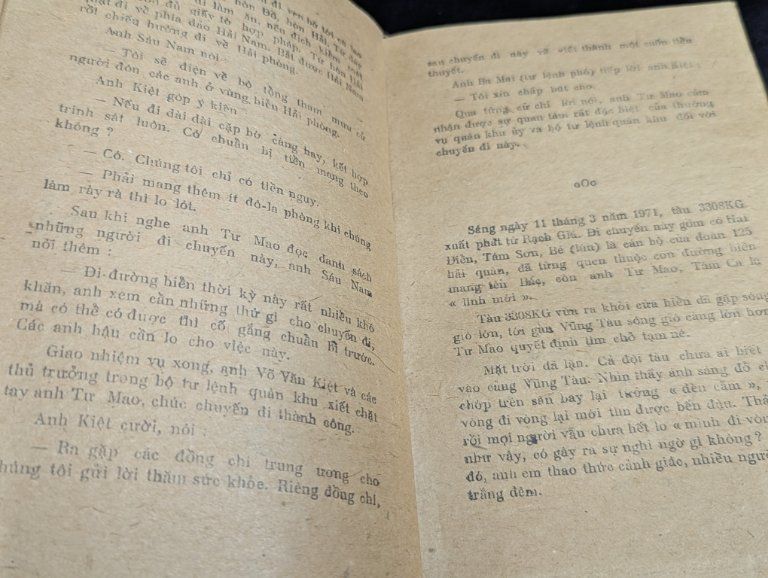 đi ven bờ tới cố
làm ăn, nếu địch kiểm
đủ giấy tờ hợp pháp. Từ hòn Hải
đi về phía đảo Hải Nam. Bắt được Hải Nam
rồi chiếu hướng đi về Hải phòng.
Anh Sáu Nam nói:
— Tôi sẽ điện về bộ tổng tham mưu cử
người đón các anh ở vùng biển Hải phòng.
Anh Kiệt góp ý kiến
— Nếu đi dài dài cập bờ càng hay, kết hợp
trinh sát luôn. Có chuẩn bị tiền mang theo
không ?
— Có. Chúng tôi chỉ có tiền ngụy.
— Phải mang thêm ít đô-la phòng khi chúng
làm rầy rà thì lo lót.
Sau khi nghe anh Tư Mao đọc danh sách
những người đi chuyến này, anh Sáu Nam
nói thêm :
— Đi đường biển thời kỳ này rất nhiều khó
khăn, anh xem cần những thứ gì cho chuyến đi,
mà có thể có được thì cố gắng chuẩn bị trước.
Các anh hậu cần lo cho việc này.
Giao nhiệm vụ xong, anh Võ Văn Kiệt và các
thủ trưởng trong bộ tư lệnh quân khu xiết chặt
tay anh Tư Mao, chúc chuyến đi thành công.
Anh Kiệt cười, nói :
— Ra gặp các đồng chí trung ương cho
húng tôi gửi lời thăm sức khỏe. Riêng đồng chí,
sau chuyến đi này về viết thành một cuốn tiểu
thuyết.
Anh Ba Mai (tư lệnh phó) tiếp lời anh Kiệt:
— Tôi xin chấp bút cho.
Qua từng cử chỉ lời nói, anh Tư Mao cảm
nhận được sự quan tâm rất đặc biệt của thường
vụ quân khu ủy và bộ tư lệnh quân khu đối với
chuyến đi này.
oOo
Sáng ngày 11 tháng 3 năm 1971, tàu 3308KG
xuất phát từ Rạch Giá. Đi chuyến này gồm có Hai
Điền, Tám Sơn, Bé (lùn) là cán bộ của đoàn 125
hải quân, đã từng quen thuộc con đường biển
mang tên Bác, còn anh Tư Mao, Tám Ca là
« lính mới ».
Tàu 3308KG vừa ra khỏi cửa biển đã gặp sóng
gió lớn, tới gần Vũng Tàu sóng gió càng lớn hơn
Tư Mao quyết định tìm chỗ tạm né.
Mặt trời đã lặn. Cả đội tàu chưa ai biết
vào cảng Vũng Tàu. Nhìn thấy ánh sáng đỏ
chớp trên sân bay lại tưởng « đèn cấm »,
vòng đi vòng lại mới tìm được bến đậu. Thả
rồi mọi người vẫn chưa hết lo « mình đi vò
như vậy, có gây ra sự nghi ngờ gì không ?
đó, anh em thao thức cảnh giác, nhiều ngườ
trắng đêm.